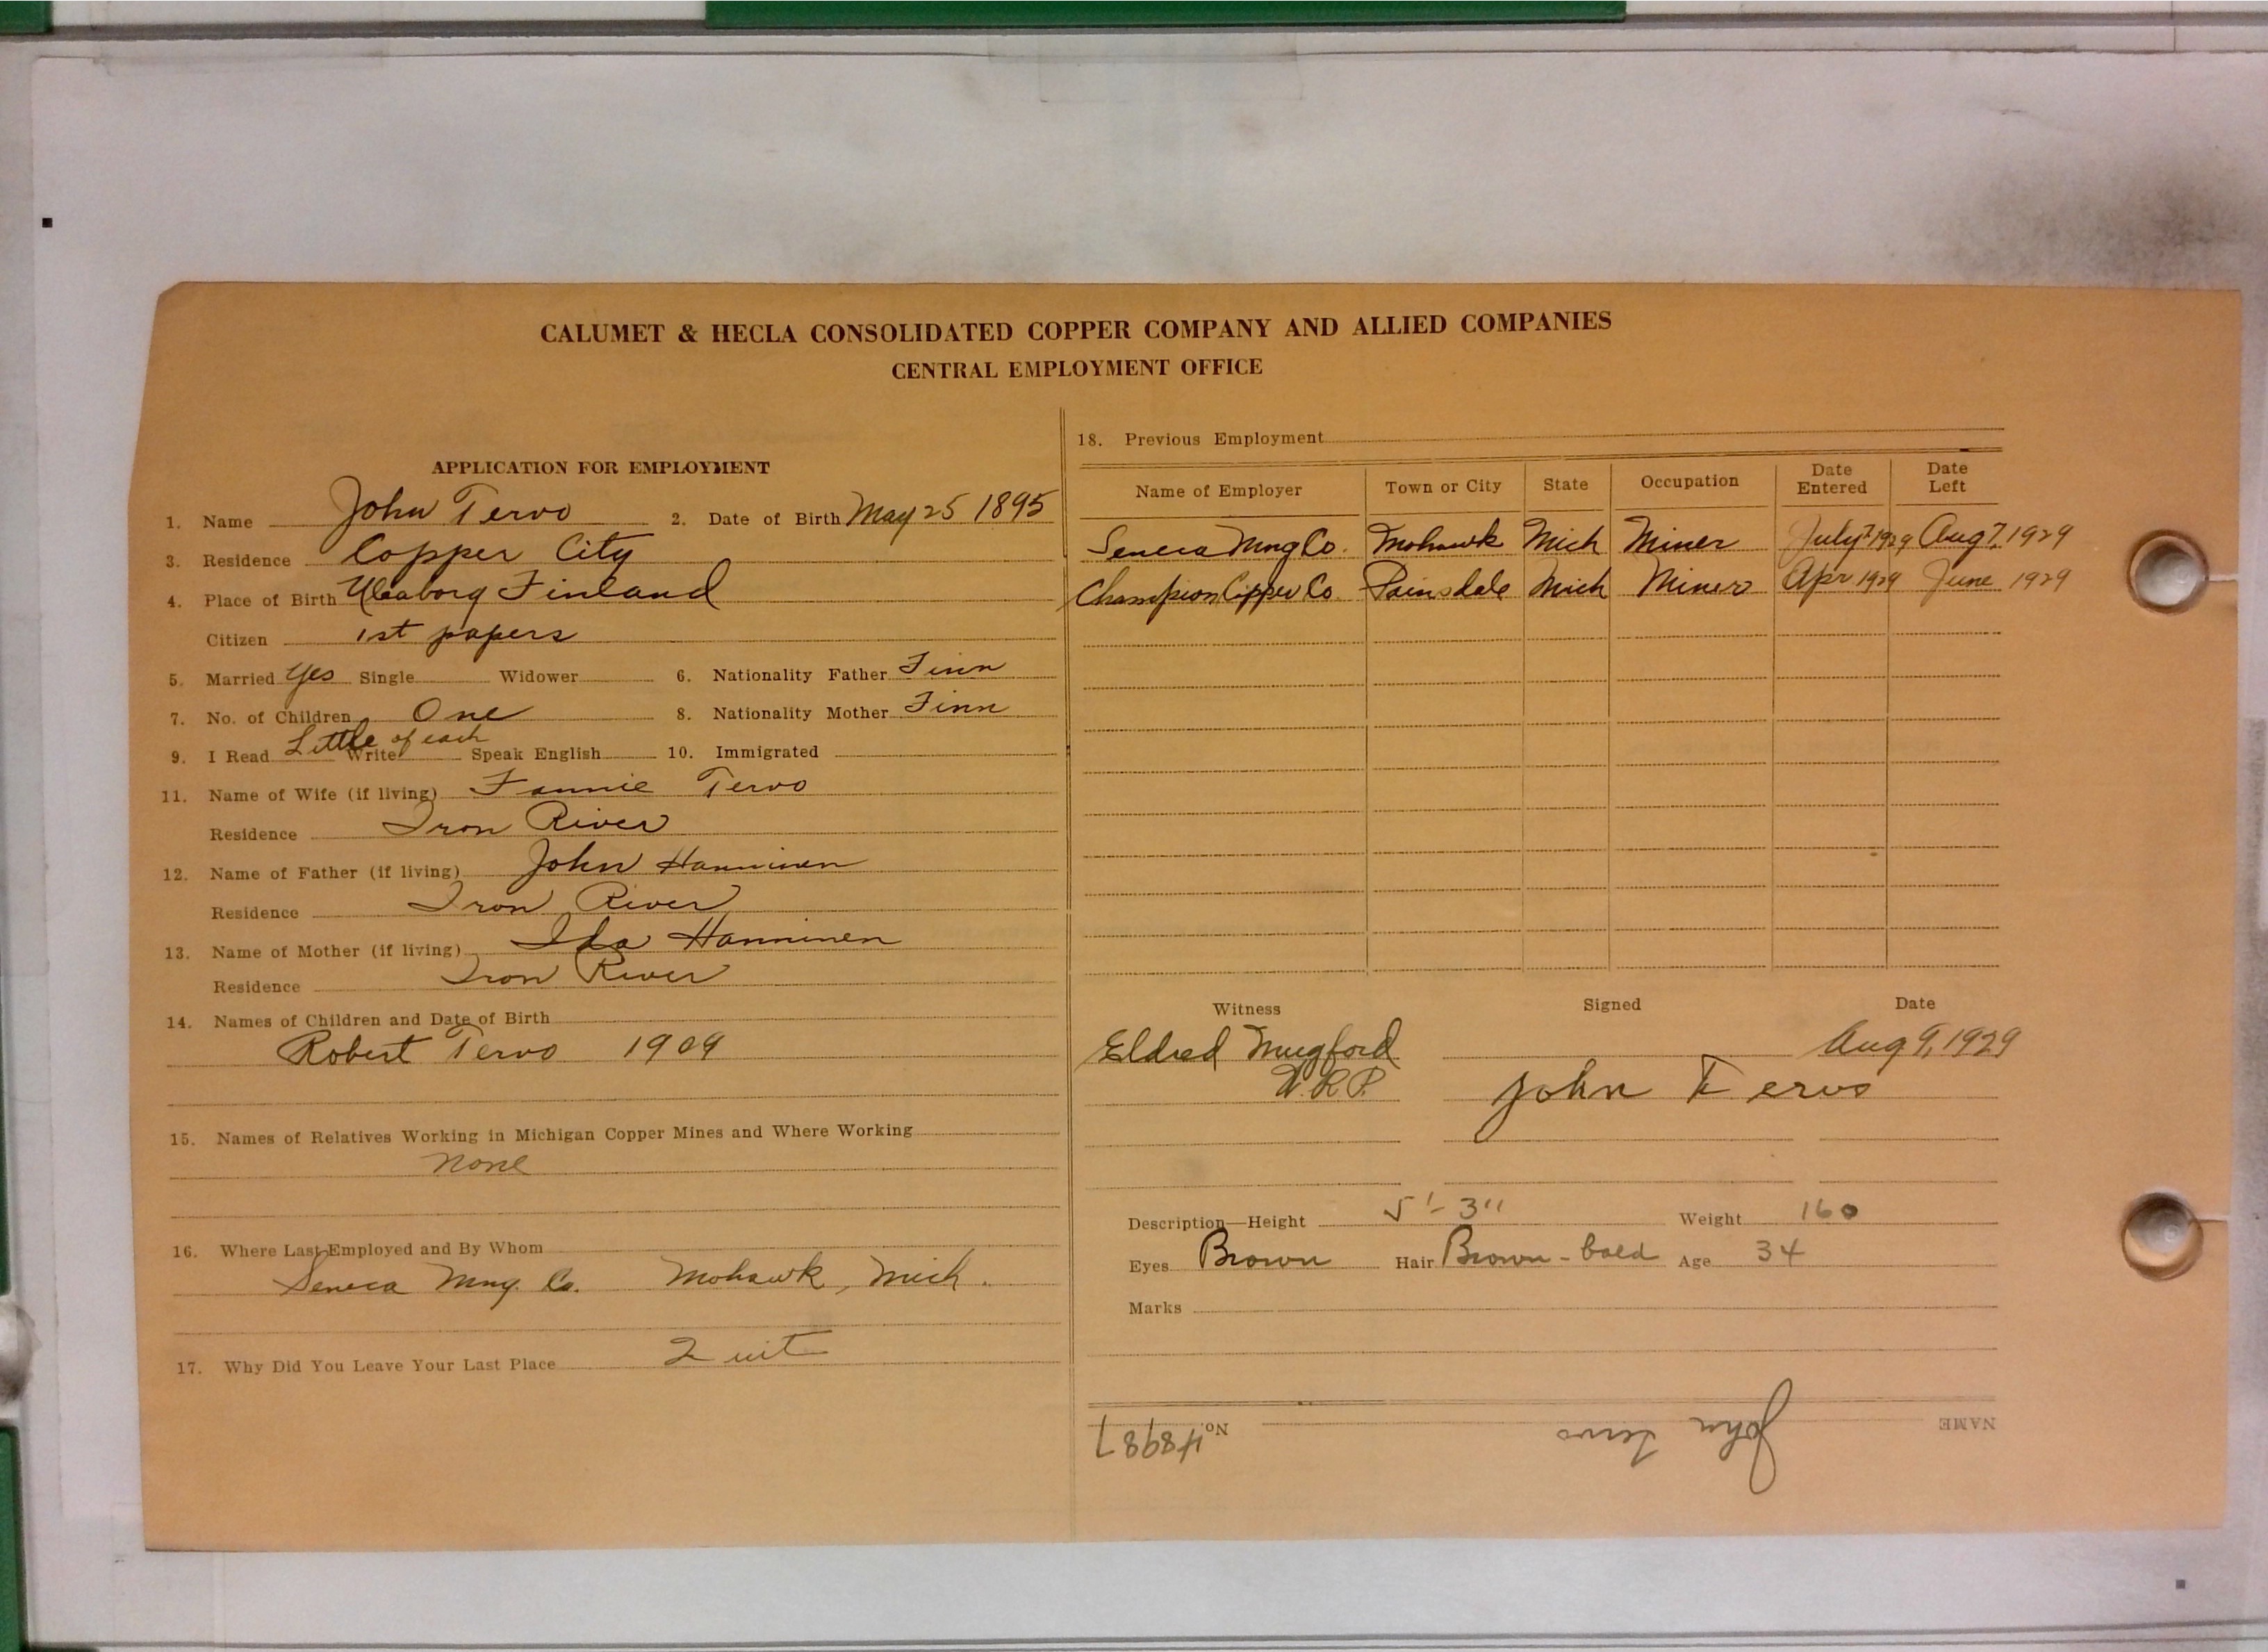 CALUMET & HECLA CONSOLIDATED COPPER COMPANY AND ALLIED COMPANIES
CENTRAL EMPLOYMENT OFFICE
APPLICATION FOR EMPLOYMENT
1. Name John Tervo 2. Date of Birth May 25 1895
3. Residence Copper City
4. Place of Birth Uleaborg Finland
Citizen 1st papers
5. Married Yes Single Widower 6. Nationality Father Finn
7. No. of Children One 8. Nationality Mother Finn
9. I Read Little of each Write Speak English 10. Immigrated
11. Name of Wife (if living) Fannie Tervo
Residence Iron River
12. Name of Father (if living) John Hanninen
Residence Iron River
13. Name of Mother (if living) Ida Hanninen
Residence Iron River
14. Names of Children and Date of Birth
Robert Tervo 1909
15. Names of Relatives Working in Michigan Copper Mines and Where Working
none
16. Where Last Employed and By Whom
Seneca Mng. Co. Mohawk, Mich.
17. Why Did You Leave Your Last Place Quit
18. Previous Employment
Name of Employer Town or City State Occupation Date Entered Date Left
Seneca Mng Co. Mohawk Mich Miner July 7 1929 Aug 7, 1929
Champion Copper Co Painsdale Mich Miner Apr 1929 June 1929
Witness Signed Date
Eldred Mugford Aug 9, 1929
W.R.P. John Tervo
Description—Height 5'-3" Weight 160
Eyes Brown Hair Brown - bald Age 34
Marks
NAME John Tervo No. 48987